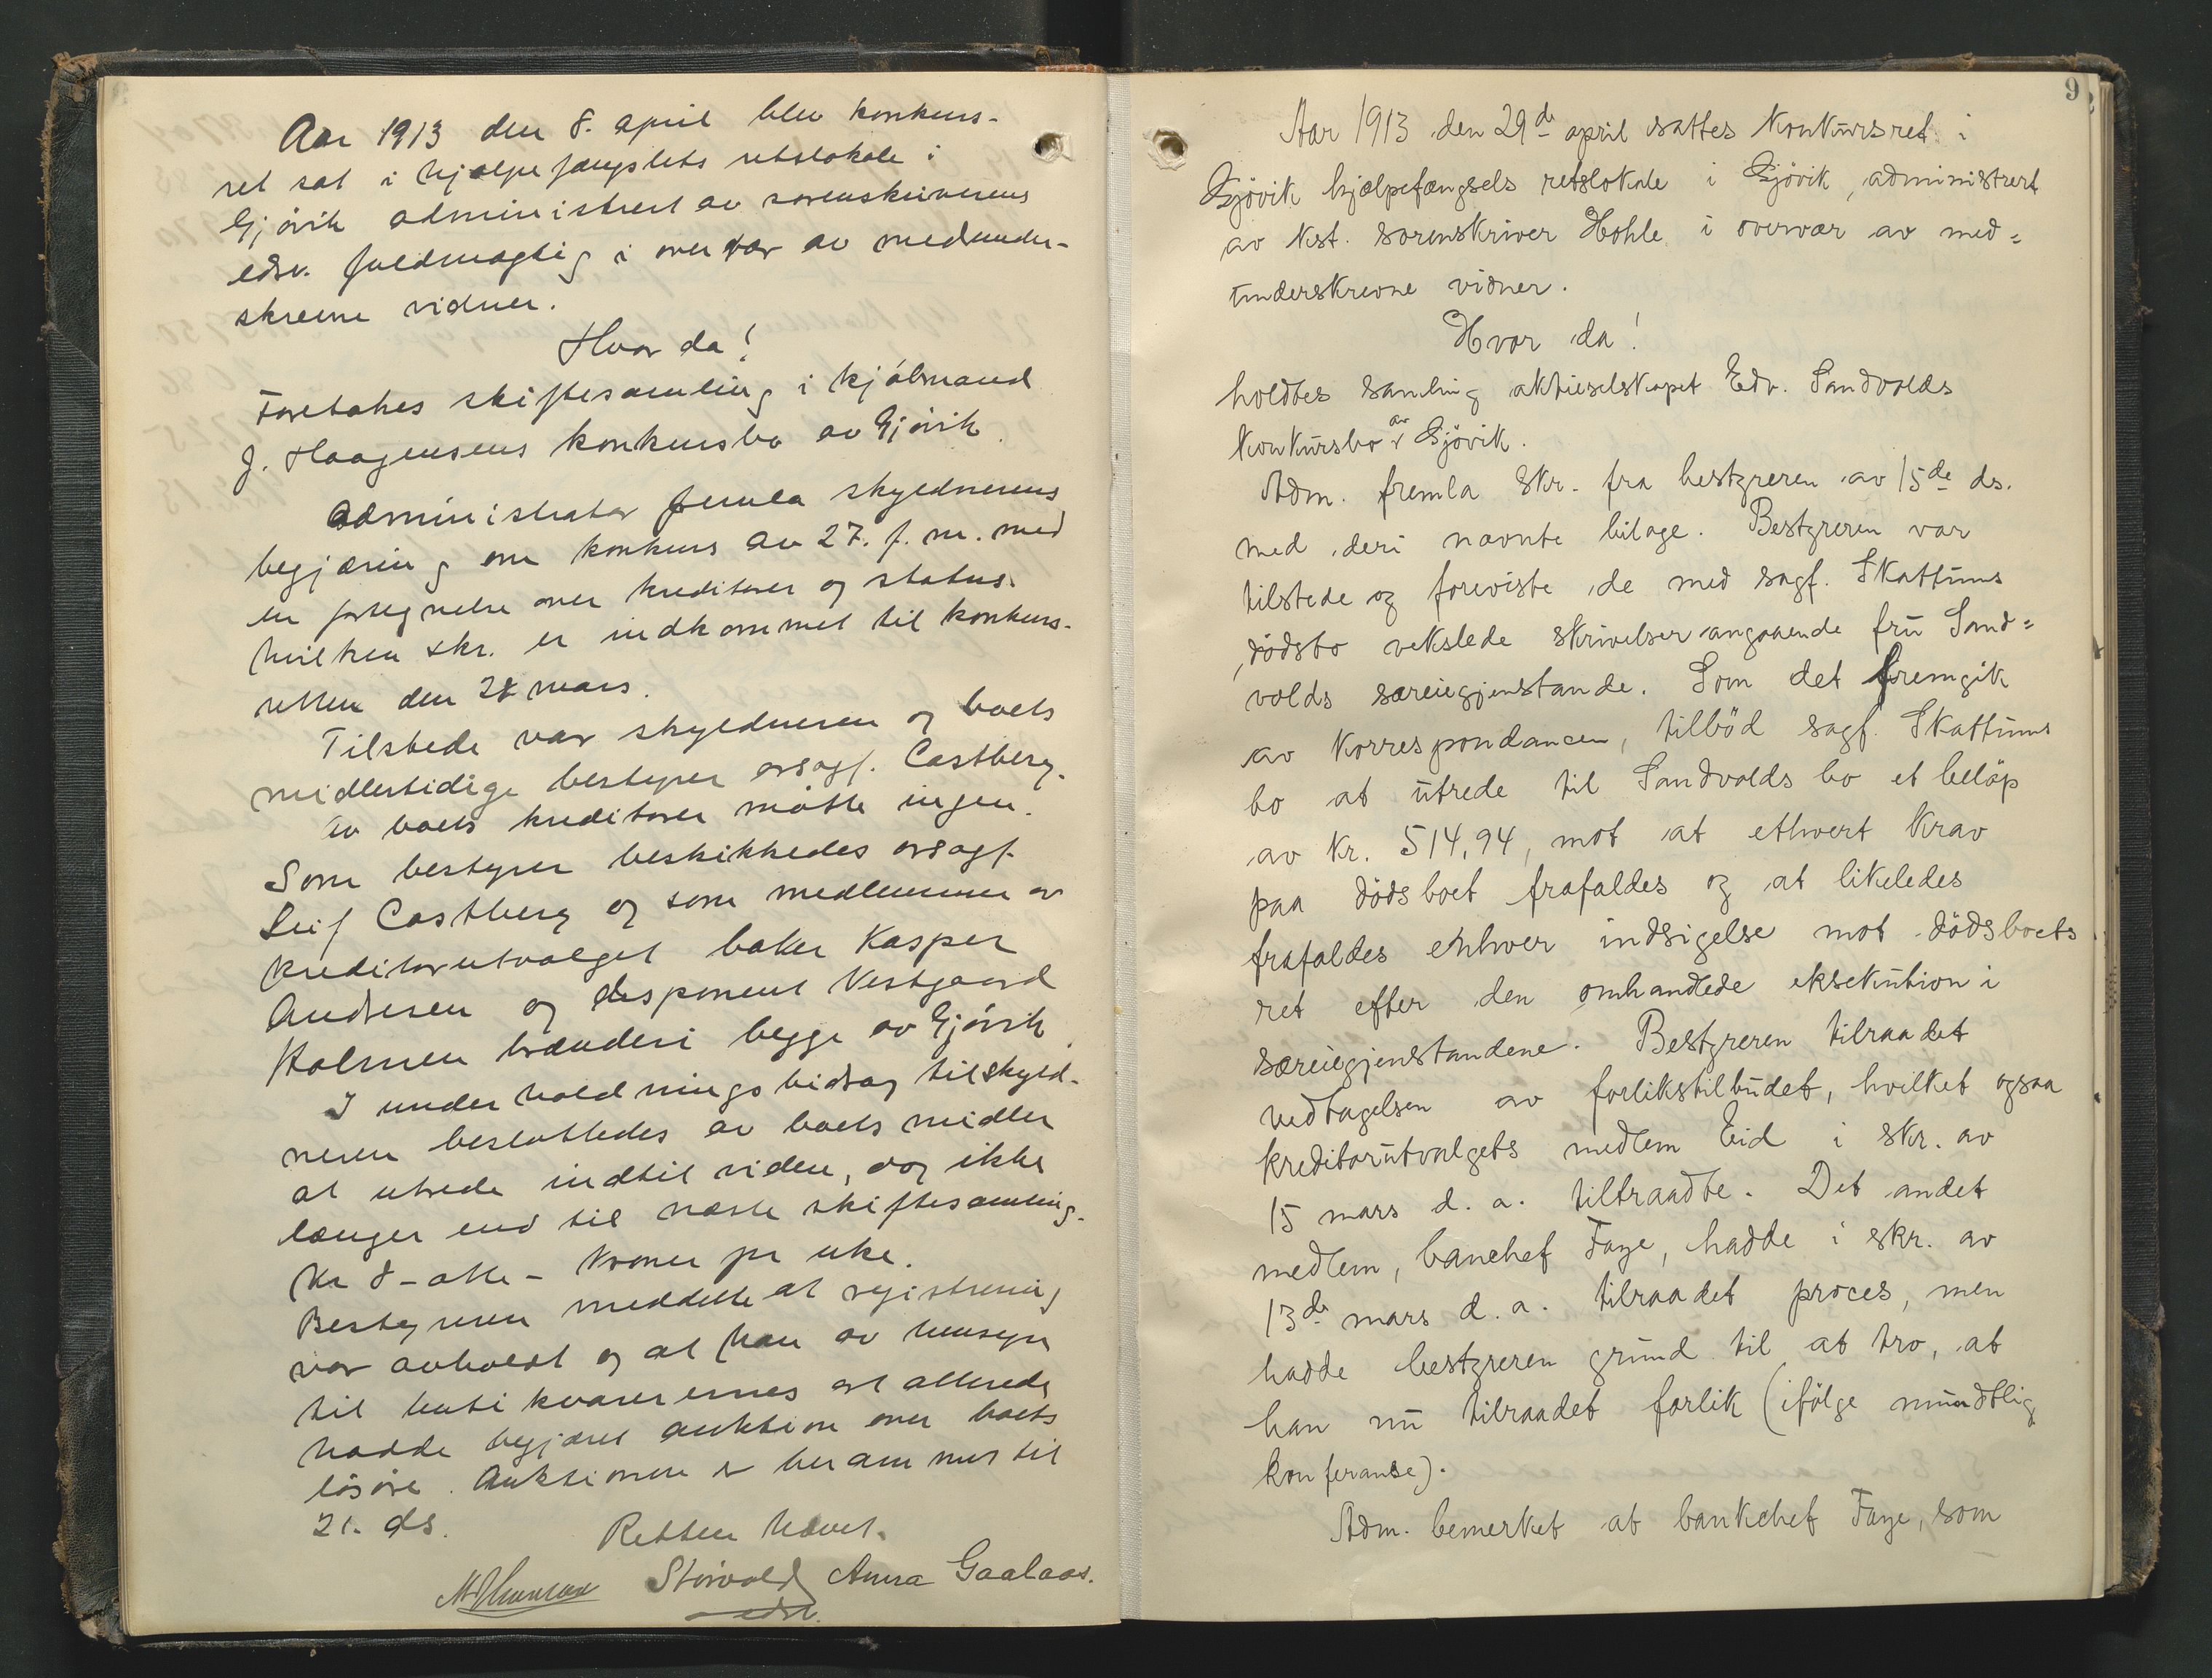 Aar 1913 den 8. april blev konkurs-
ret sat i hjælpefængslets retslokale i
Gjövik administrert av sorenskriverens
edsv. fuldmægtig i overvær av medunder-
skrevne vidner.
Hvor da!
Foretokes skiftesamling i kjøbmand
J. Haagensens konkursbo av Gjövik.
Administrator fremla skyldnerens
begjæring om konkurs av 27. f. m. med
en fortegnelse over kreditorer og status.
hvilken skr. er indkommet til konkurs-
retten den 28 mars.
Tilstede var skyldneren og boets
midlertidige bestyrer orsagf. Castberg.
Av boets kreditorer mötte ingen.
Som bestyrer beskikkedes orsagf.
Leif Castberg og som medlemmer av
kreditorutvalget baker Kasper
Andresen og disponent Vestgaard
Holmen brænderi begge av Gjövik.
I underholdningsbidrag til skyld-
neren besluttedes av boets midler
at utrede indtil videre, dog ikke
længer end til næste skiftesamling.
Kr 8 - otte - kroner pr uke.
Bestyreren meddelte at registrering
var avholdt og at han av hensyn
til butikvarernes art allerede
hadde begjært auktion over boets
lösöre. Auktionen er berammet til
21. ds.
Retten hævet.
Störvold Anna Gaalaas.
edsv.
9
Aar 1913 den 29de april sattes konkursret i
Gjövik hjælpefængsels retslokale i Gjövik, administrert
av kst. sorenskriver Hohle i overvær av med=
underskrevne vidner.
Hvor da!
holdtes samling aktieselskapet Edv. Sandvolds
konkursbo av Gjövik.
Adm. fremla skr. fra bestyreren av 15de ds.
med deri nævnte bilage. Bestyreren var
tilstede og foreviste de med sagf. Skattums
dödsbo vekslede skrivelser angaaende fru Sand=
volds særeiegjenstande. Som det fremgik
av korrespondancen, tilböd sagf. Skattums
bo at utrede til Sandvolds bo et belöp
av kr. 514,94, mot at ethvert krav
paa dödsboet frafaldes og at likeledes
frafaldes enhver indsigelse mot dödsboets
ret efter den omhandlede eksekution i
særeiegjenstandene. Bestyreren tilraadet
vedtagelsen av forlikstilbudet, hvilket ogsaa
kreditorutvalgets medlem Eid i skr. av
15 mars d. a. tiltraadte. Det andet
medlem, banchef Faye, hadde i skr. av
13de mars d. a. tilraadet proces, men
hadde bestyreren grund til at tro, at
han nu tilraadet forlik (ifölge mundtlig
konferanse).
Adm. bemerket at bankchef Faye, som